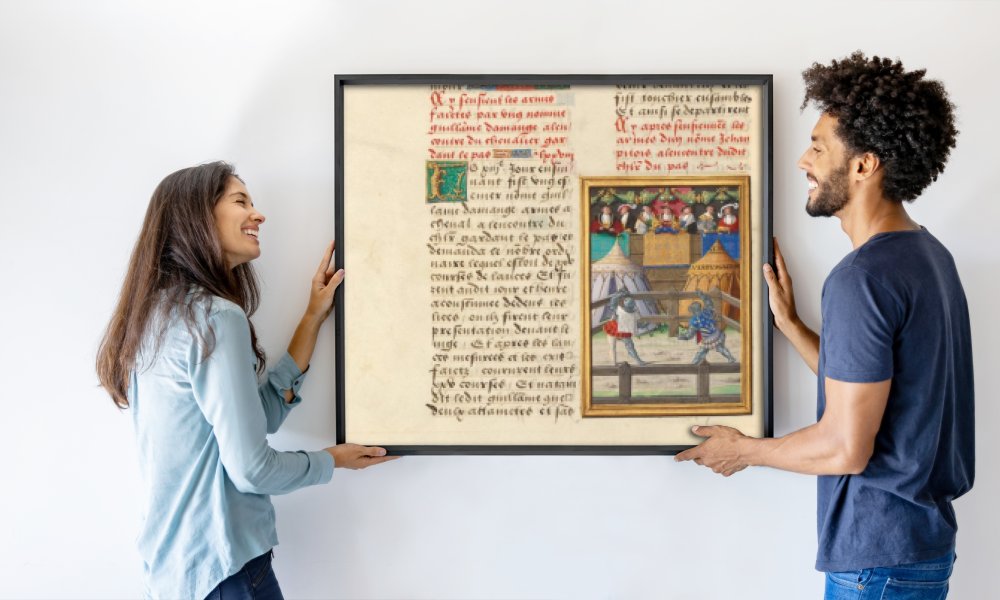 Cy sensieut les armes
faictes par vng nomme
guillame damange alen
contre du cheualier gar
dant le pas
nant fist vng es
cuier nōme guil
lame damange armes a
cheual a lencontre du
chlr gardant le pas et
demanda le nobre ordi
naire lequel estoit de
courses de lances Et fu
rent audit iour et heure
acoustumee dedens les
lices ou ilz firent leur
presentation deuant le
iuge Et apres les lan
ces mesurees et les
faictz coururent leurs
courses Et
dit ledit guillame que
deux attaintes et
fist touchier ensambles
Et ainsi se departirent
Cy apres sensieuent les
armes dun nōme Jehan
pitois alencontre dudit
chlr du pas